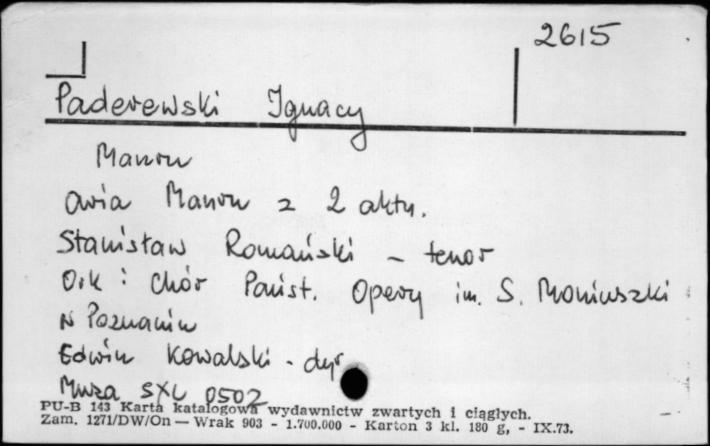 2615
Paderewski Ignacy
Manru
aria Manru z 2 aktu.
Stanisław Romański – tenor
Ork i Chór Państ. Opery im. S. Moniuszki
w Poznaniu
Edwin Kowalski - dyr
Muza SXL 0502
PU-B 143 Karta katalogowa wydawnictw zwartych i ciągłych.
Zam. 1271/DW/On — Wrak 903 - 1.700.000 - Karton 3 kl. 180 g, - IX.73.